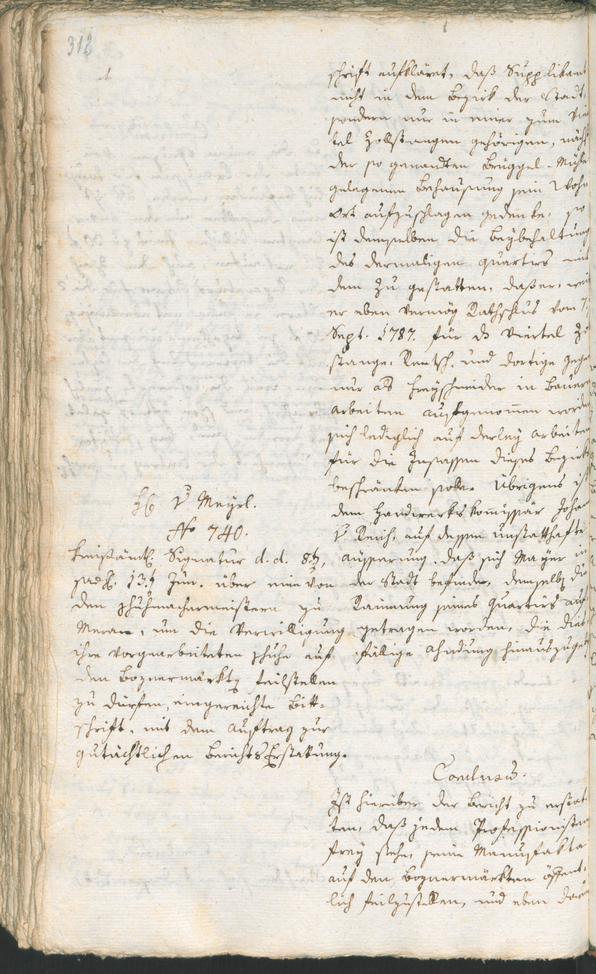 312
schrift aufkläret, daß Supplikant
nicht in dem Bezirk der Stadt,
sondern nur in einer zum Vier
tel Zollstangen gehörigen, nächst
der so genannten Brüggel-Mühl
gelegenen Behausung sein Wohn
Ort aufzuschlagen gedenke, so
ist demselben die Beybehaltung
des dermaligen Quartirs mit
dem zu gestatten, daß er, weil
er eben vermög Rathschlus vom 7
Sept. 1787. für das Viertel Zoll
stange, Rentsch, und dortige Gegend
nur als Freyschneider in Bauern
arbeiten aufgenommen worden
sich lediglich auf derley Arbeiten
für die Insassen dieses Bezirks
beschränken solle. Übrigens ist
dem Handwerks Komissär Johann
V Reich, auf dessen unstatthafte
äusserung, daß sich Mayer in
der Stadt befinde, demselben die
Raumung seines Quartirs auf
getragen worden, die dies
fällige Ahndung hinauszugeben
H V Meyrl.
No 740.
Kreisämtl. Signatur d. d. 8t,
13t Jun. über eine von
den Schuhmachermeistern zu
Meran, um die Verwilligung
ihre vorgearbeiteten Schuhe auf
den Boznermärkten feilstellen
zu dürfen, eingereichte Bitt-
schrift, mit dem Auftrag zur
gutächtlichen Berichts Erstattung.
Conclusum.
Ist hierüber der Bericht zu erstat
ten, daß jedem Professionisten
frey stehe, seine Manufakta
auf den Boznermärkten öffent-
lich feilzustellen, und eben darum